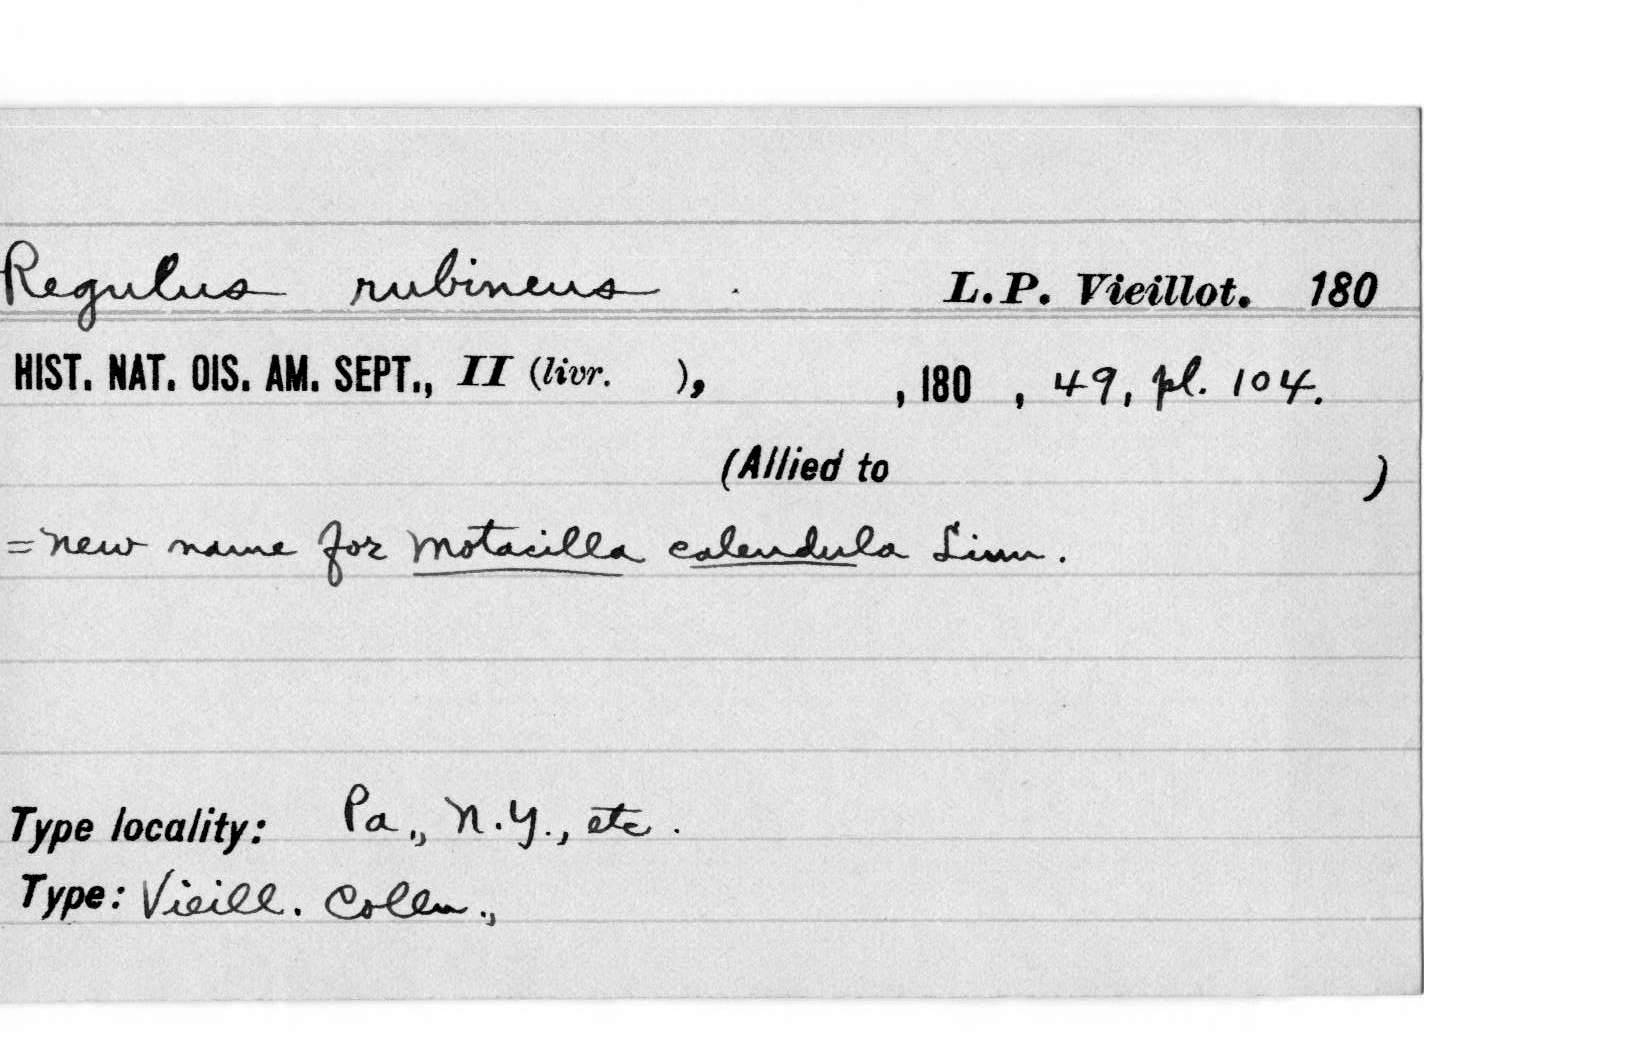 Regulus rubineus . L.P. Vieillot. 180
HIST. NAT. OIS. AM. SEPT., II (livr. ), , 180 , 49, pl. 104.
(Allied to )
= new name for Motacilla calendula Linn.
Type locality: Pa., N.Y., etc.
Type: Vieill. Colln.,